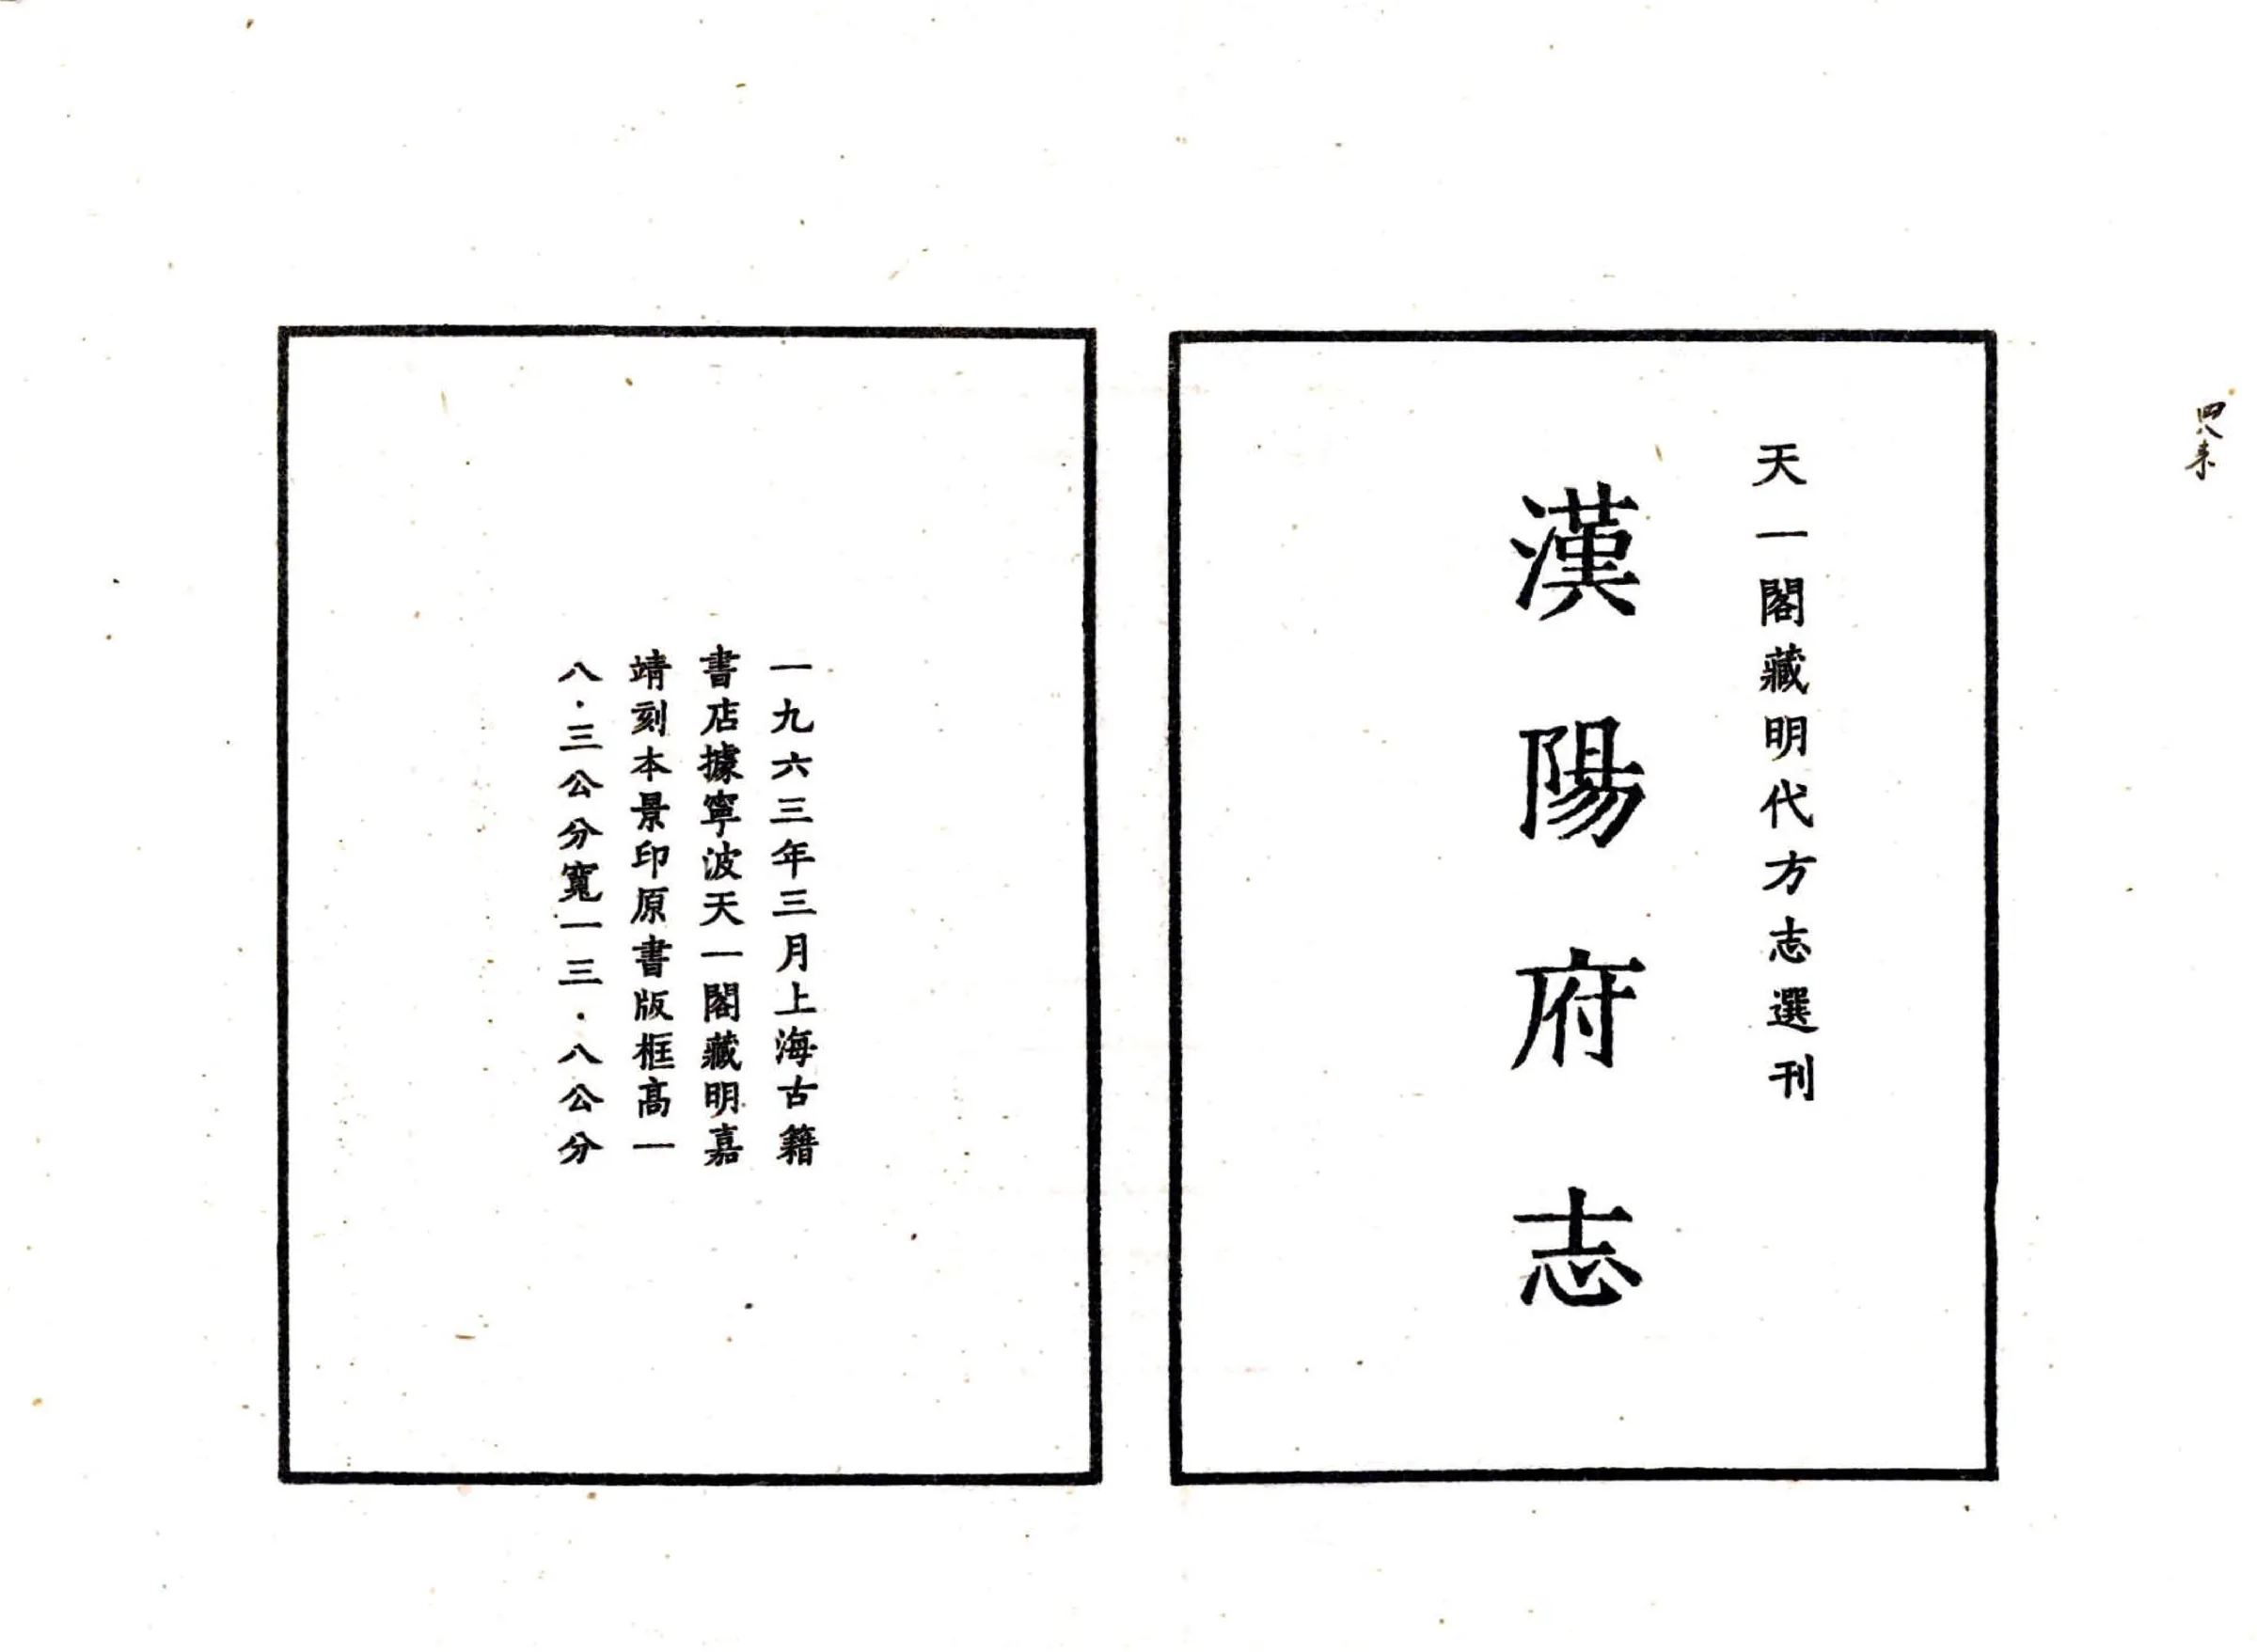 天一閣藏明代方志選刊
漢陽府志
一九六三年三月上海古籍
書店據寧波天一閣藏明嘉
靖刻本景印原書版框高一
八·三公分寬一三·八公分